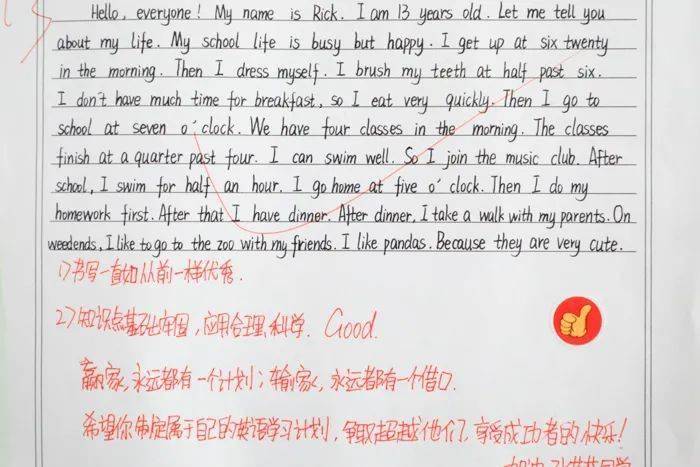 Hello, everyone! My name is Rick. I am 13 years old. Let me tell you
about my life. My school life is busy but happy. I get up at six twenty
in the morning. Then I dress myself. I brush my teeth at half past six.
I don't have much time for breakfast, so I eat very quickly. Then I go to
school at seven o'clock. We have four classes in the morning. The classes
finish at a quarter past four. I can swim well. So I join the music club. After
school, I swim for half an hour. I go home at five o'clock. Then I do my
homework first. After that I have dinner. After dinner, I take a walk with my parents. On
weedends, I like to go to the zoo with my friends. I like pandas. Because they are very cute.
1)书写一直如从前一样优秀.
2)知识点基础牢固,应用合理、科学. Good.
赢家,永远都有一个计划;输家,永远都有一个借口.
希望你制定属于自己的英语学习计划,争取超越他们,享受成功者的快乐!